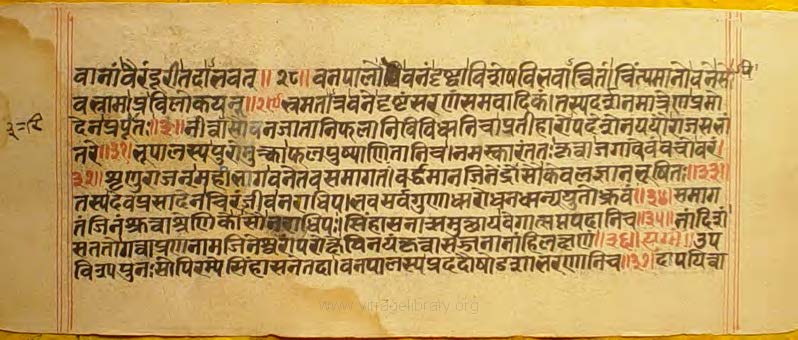 वानां वैरं दूरीतदाभवत् ॥२८॥ वनपालो वनं दृष्ट्वा विशेषविभवान्वितं चिंत्यमानो वने
भ्रमताऽत्र वने दृष्टं सरणं समवादिकं तस्य दर्शनमात्रेण प्रमो
देन प्रपूरितः ॥३०॥ नीत्वासौ वनजातानि फलानि विविधानि च प्रतीहारोपदेशेन ययौ राजसभां
तरे ॥३१॥ भूपालस्य पुरो मुक्त्वा फलपुष्पाणि तानि च । नमस्कारं ततः कृत्वा जगाद वचो वरं ।
३२॥ शृणु राजन् महाभाग वने तव समागतः वर्द्धमानजिनेशोसौ केवलज्ञानभूषितः ॥३३॥
तस्य देवप्रसादेन चिरंजीव नराधिप । भव सर्वगुणाधारो धनधान्ययुतो ध्रुवं ॥३४॥ समाग
तं जिनं श्रुत्वा श्रेणिकोसौ नराधिपः । सिंहासनात्समुत्थाय वेगात्सप्तपदानि च ॥३५॥
स ततो गत्वा प्रणनाम जिनेश्वरं परोक्षविनयं कृत्वा सज्जनानां हि लक्षणं ॥३६॥ युग्मं । उप
विश्य पुनः सोपि रम्ये सिंहासने तदा । वनपालस्य प्रददौ षोडशाभरणानि च ॥३७॥ दापयित्वा
www.vitragelibrary.org